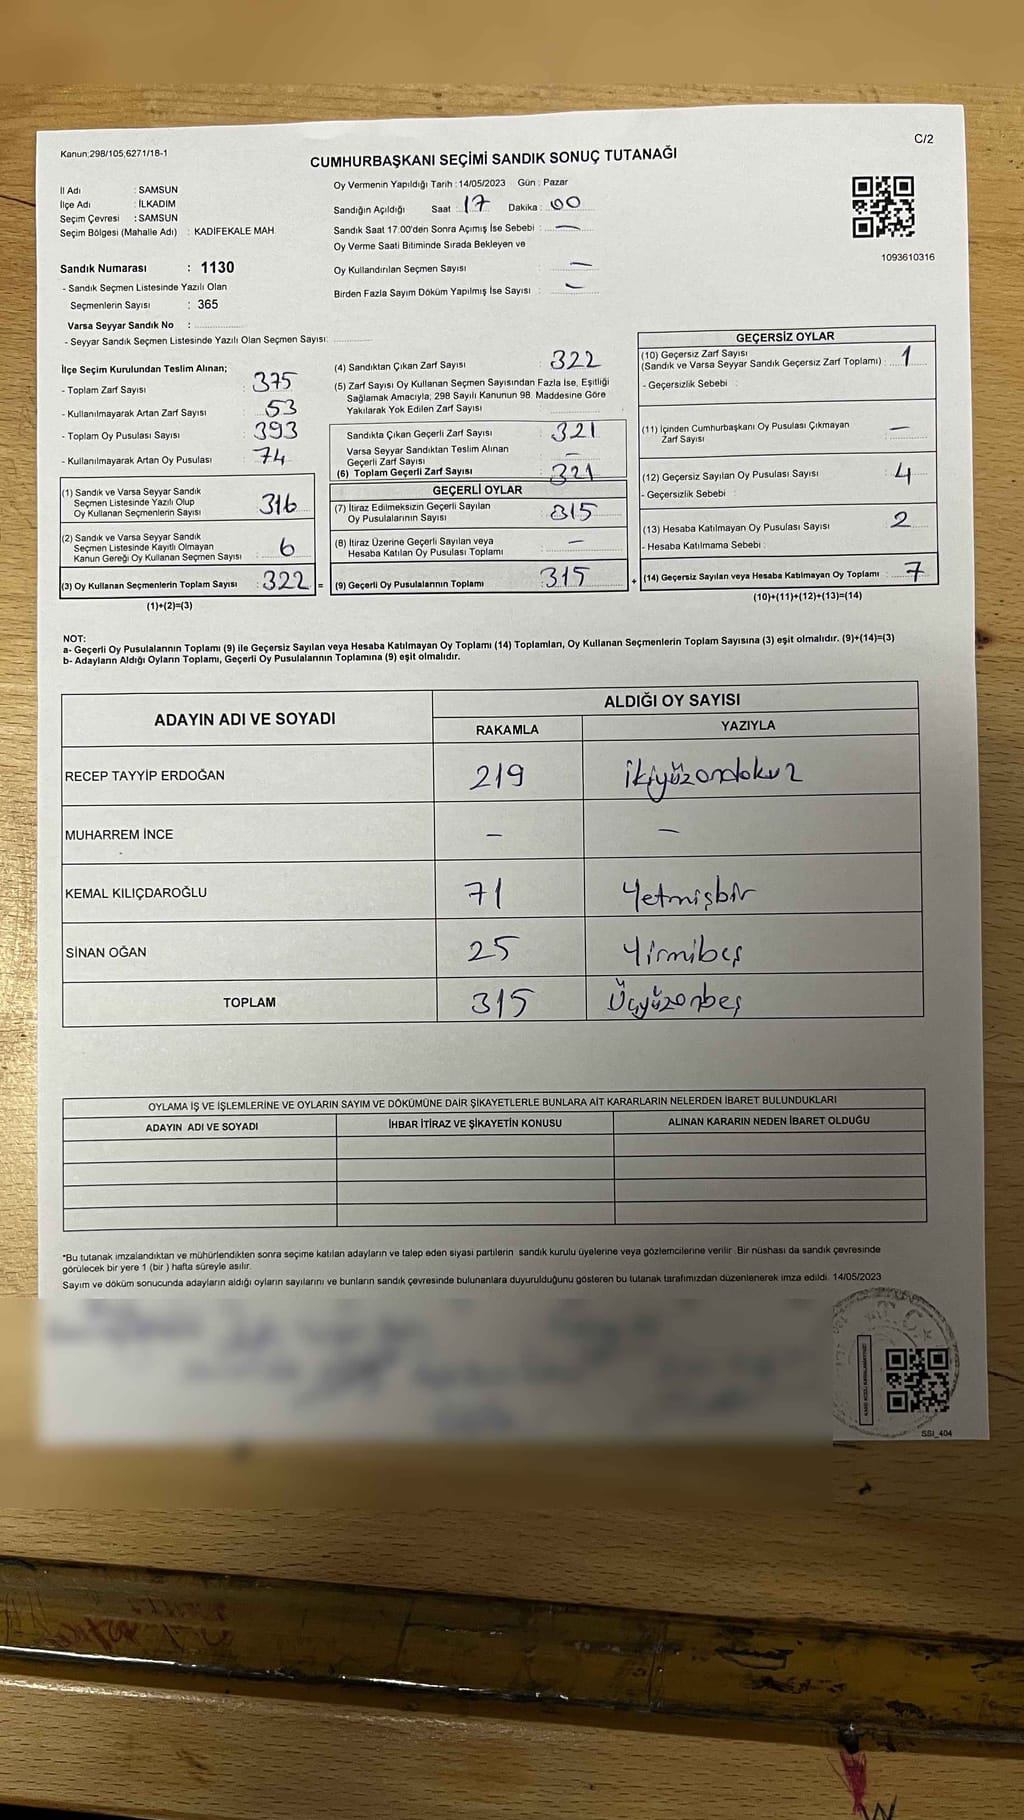 Kanun;298/105;6271/18-1
C/2
CUMHURBAŞKANI SEÇİMİ SANDIK SONUÇ TUTANAĞI
İl Adı : SAMSUN
İlçe Adı : İLKADIM
Seçim Çevresi : SAMSUN
Seçim Bölgesi (Mahalle Adı) : KADIFEKALE MAH.
Sandık Numarası : 1130
- Sandık Seçmen Listesinde Yazılı Olan
Seçmenlerin Sayısı : 365
Varsa Seyyar Sandık No :
- Seyyar Sandık Seçmen Listesinde Yazılı Olan Seçmen Sayısı:
Oy Vermenin Yapıldığı Tarih : 14/05/2023 Gün : Pazar
Sandığın Açıldığı Saat : 17 Dakika : 00
Sandık Saat 17.00'den Sonra Açımış İse Sebebi : —
Oy Verme Saati Bitiminde Sırada Bekleyen ve
Oy Kullandırılan Seçmen Sayısı : —
Birden Fazla Sayım Döküm Yapılmış İse Sayısı : —
1093610316
İlçe Seçim Kurulundan Teslim Alınan;
- Toplam Zarf Sayısı : 375
- Kullanılmayarak Artan Zarf Sayısı : 53
- Toplam Oy Pusulası Sayısı : 393
- Kullanılmayarak Artan Oy Pusulası : 74
(1) Sandık ve Varsa Seyyar Sandık
Seçmen Listesinde Yazılı Olup
Oy Kullanan Seçmenlerin Sayısı : 316
(2) Sandık ve Varsa Seyyar Sandık
Seçmen Listesinde Kayıtlı Olmayan
Kanun Gereği Oy Kullanan Seçmen Sayısı : 6
(3) Oy Kullanan Seçmenlerin Toplam Sayısı : 322 =
(1)+(2)=(3)
(4) Sandıktan Çıkan Zarf Sayısı : 322
(5) Zarf Sayısı Oy Kullanan Seçmen Sayısından Fazla İse, Eşitliği
Sağlamak Amacıyla, 298 Sayılı Kanunun 98. Maddesine Göre
Yakılarak Yok Edilen Zarf Sayısı :
Sandıkta Çıkan Geçerli Zarf Sayısı : 321
Varsa Seyyar Sandıktan Teslim Alınan
Geçerli Zarf Sayısı : —
(6) Toplam Geçerli Zarf Sayısı : 321
GEÇERLİ OYLAR
(7) İtiraz Edilmeksizin Geçerli Sayılan
Oy Pusulalarının Sayısı : 315
(8) İtiraz Üzerine Geçerli Sayılan veya
Hesaba Katılan Oy Pusulası Toplamı : —
(9) Geçerli Oy Pusulalarının Toplamı : 315 +
GEÇERSİZ OYLAR
(10) Geçersiz Zarf Sayısı
(Sandık ve Varsa Seyyar Sandık Geçersiz Zarf Toplamı) : 1
- Geçersizlik Sebebi :
(11) İçinden Cumhurbaşkanı Oy Pusulası Çıkmayan
Zarf Sayısı : —
(12) Geçersiz Sayılan Oy Pusulası Sayısı : 4
- Geçersizlik Sebebi :
(13) Hesaba Katılmayan Oy Pusulası Sayısı : 2
- Hesaba Katılmama Sebebi :
(14) Geçersiz Sayılan veya Hesaba Katılmayan Oy Toplamı : 7
(10)+(11)+(12)+(13)=(14)
NOT:
a- Geçerli Oy Pusulalarının Toplamı (9) ile Geçersiz Sayılan veya Hesaba Katılmayan Oy Toplamı (14) Toplamları, Oy Kullanan Seçmenlerin Toplam Sayısına (3) eşit olmalıdır. (9)+(14)=(3)
b- Adayların Aldığı Oyların Toplamı, Geçerli Oy Pusulalarının Toplamına (9) eşit olmalıdır.
ADAYIN ADI VE SOYADI
ALDIĞI OY SAYISI
RAKAMLA YAZIYLA
RECEP TAYYİP ERDOĞAN 219 ikiyüzondokuz
MUHARREM İNCE — —
KEMAL KILIÇDAROĞLU 71 Yetmişbir
SİNAN OĞAN 25 Yirmibeş
TOPLAM 315 Üçyüzonbeş
OYLAMA İŞ VE İŞLEMLERİNE VE OYLARIN SAYIM VE DÖKÜMÜNE DAİR ŞİKAYETLERLE BUNLARA AİT KARARLARIN NELERDEN İBARET BULUNDUKLARI
ADAYIN ADI VE SOYADI İHBAR İTİRAZ VE ŞİKAYETİN KONUSU ALINAN KARARIN NEDEN İBARET OLDUĞU
*Bu tutanak imzalandıktan ve mühürlendikten sonra seçime katılan adayların ve talep eden siyasi partilerin sandık kurulu üyelerine veya gözlemcilerine verilir. Bir nüshası da sandık çevresinde
görülecek bir yere 1 (bir ) hafta süreyle asılır.
Sayım ve döküm sonucunda adayların aldığı oyların sayılarını ve bunların sandık çevresinde bulunanlara duyurulduğunu gösteren bu tutanak tarafımızdan düzenlenerek imza edildi. 14/05/2023
T.C.
SSI_404